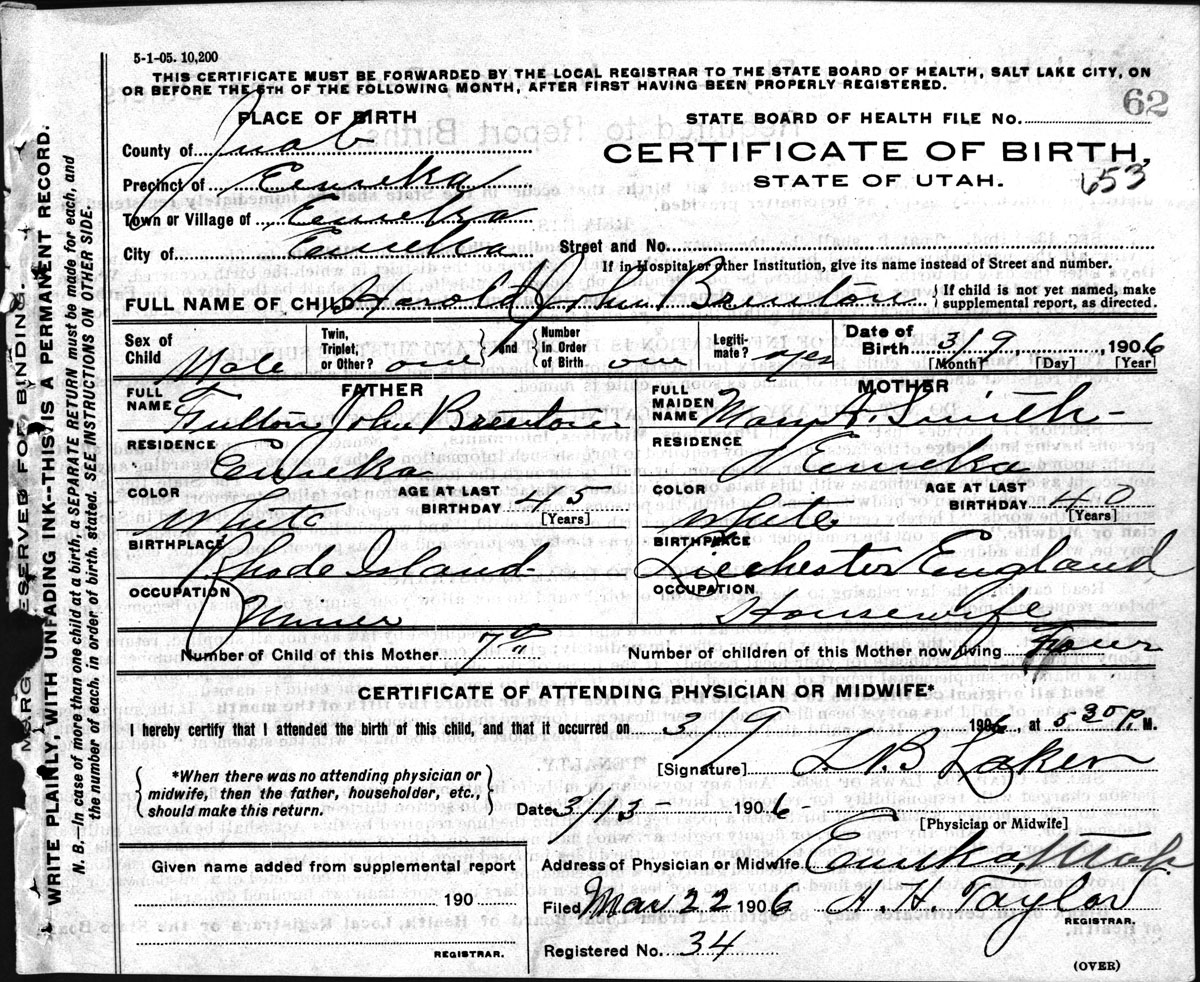 5-1-05. 10,200
THIS CERTIFICATE MUST BE FORWARDED BY THE LOCAL REGISTRAR TO THE STATE BOARD OF HEALTH, SALT LAKE CITY, ON
OR BEFORE THE 5TH OF THE FOLLOWING MONTH, AFTER FIRST HAVING BEEN PROPERLY REGISTERED.
62
PLACE OF BIRTH
STATE BOARD OF HEALTH FILE No.
County of Juab
CERTIFICATE OF BIRTH,
Precinct of Eureka
STATE OF UTAH.
653
Town or Village of Eureka
City of Eureka
Street and No.
If in Hospital or other Institution, give its name instead of Street and number.
FULL NAME OF CHILD Harold John Brenton
{If child is not yet named, make supplemental report, as directed.
Sex of Child Male
Twin, Triplet, or Other? one } and { Number In Order of Birth one
Legiti-mate? yes
Date of Birth 3/9, 1906
[Month] [Day] [Year]
FATHER
MOTHER
FULL NAME Fulton John Brenton
FULL MAIDEN NAME Mary A. Smith
RESIDENCE Eureka
RESIDENCE Eureka
COLOR White
AGE AT LAST BIRTHDAY 45 [Years]
COLOR White
AGE AT LAST BIRTHDAY 40 [Years]
BIRTHPLACE Rhode Island
BIRTHPLACE Liechester England
OCCUPATION Miner
OCCUPATION Housewife
Number of Child of this Mother 7
Number of children of this Mother now living Four
CERTIFICATE OF ATTENDING PHYSICIAN OR MIDWIFE*
I hereby certify that I attended the birth of this child, and that it occurred on 3/9 1906, at 5 30 P. M.
*When there was no attending physician or midwife, then the father, householder, etc., should make this return.
[Signature] L.B. Laker
Date 3/13- 1906-
[Physician or Midwife]
Given name added from supplemental report
190
REGISTRAR.
Address of Physician or Midwife Eureka, Utah
Filed Mar 22 1906 H. H. Taylor
REGISTRAR.
Registered No. 34
(OVER)
MARGIN RESERVED FOR BINDING.
WRITE PLAINLY, WITH UNFADING INK--THIS IS A PERMANENT RECORD.
N. B.--In case of more than one child at a birth, a SEPARATE RETURN must be made for each, and
the number of each, in order of birth, stated. SEE INSTRUCTIONS ON OTHER SIDE.